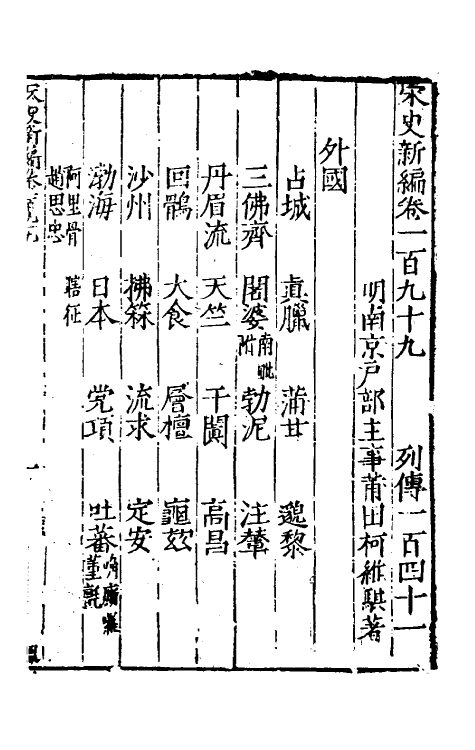 宋史新編卷一百九十九　列傳一百四十一
明南京戶部主事莆田柯維騏著
外國
占城　真臘　蒲甘　邈黎
三佛齊　闍婆南毗附　勃泥　注輦
丹眉流　天竺　于闐　高昌
回鶻　大食　層檀　龜玆
沙州　拂菻　流求　定安
渤海　日本　党項　吐蕃唃廝囉 董氊
阿里骨　瞎征
趙思忠